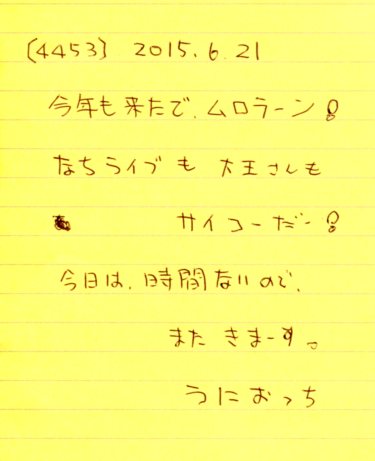 〔4453〕 2015.6.21
今年も来たで、ムロラーン!
なちライブも 大王さんも
サイコーだー!
今日は、時間ないので、
また きまーす。
うにおっち